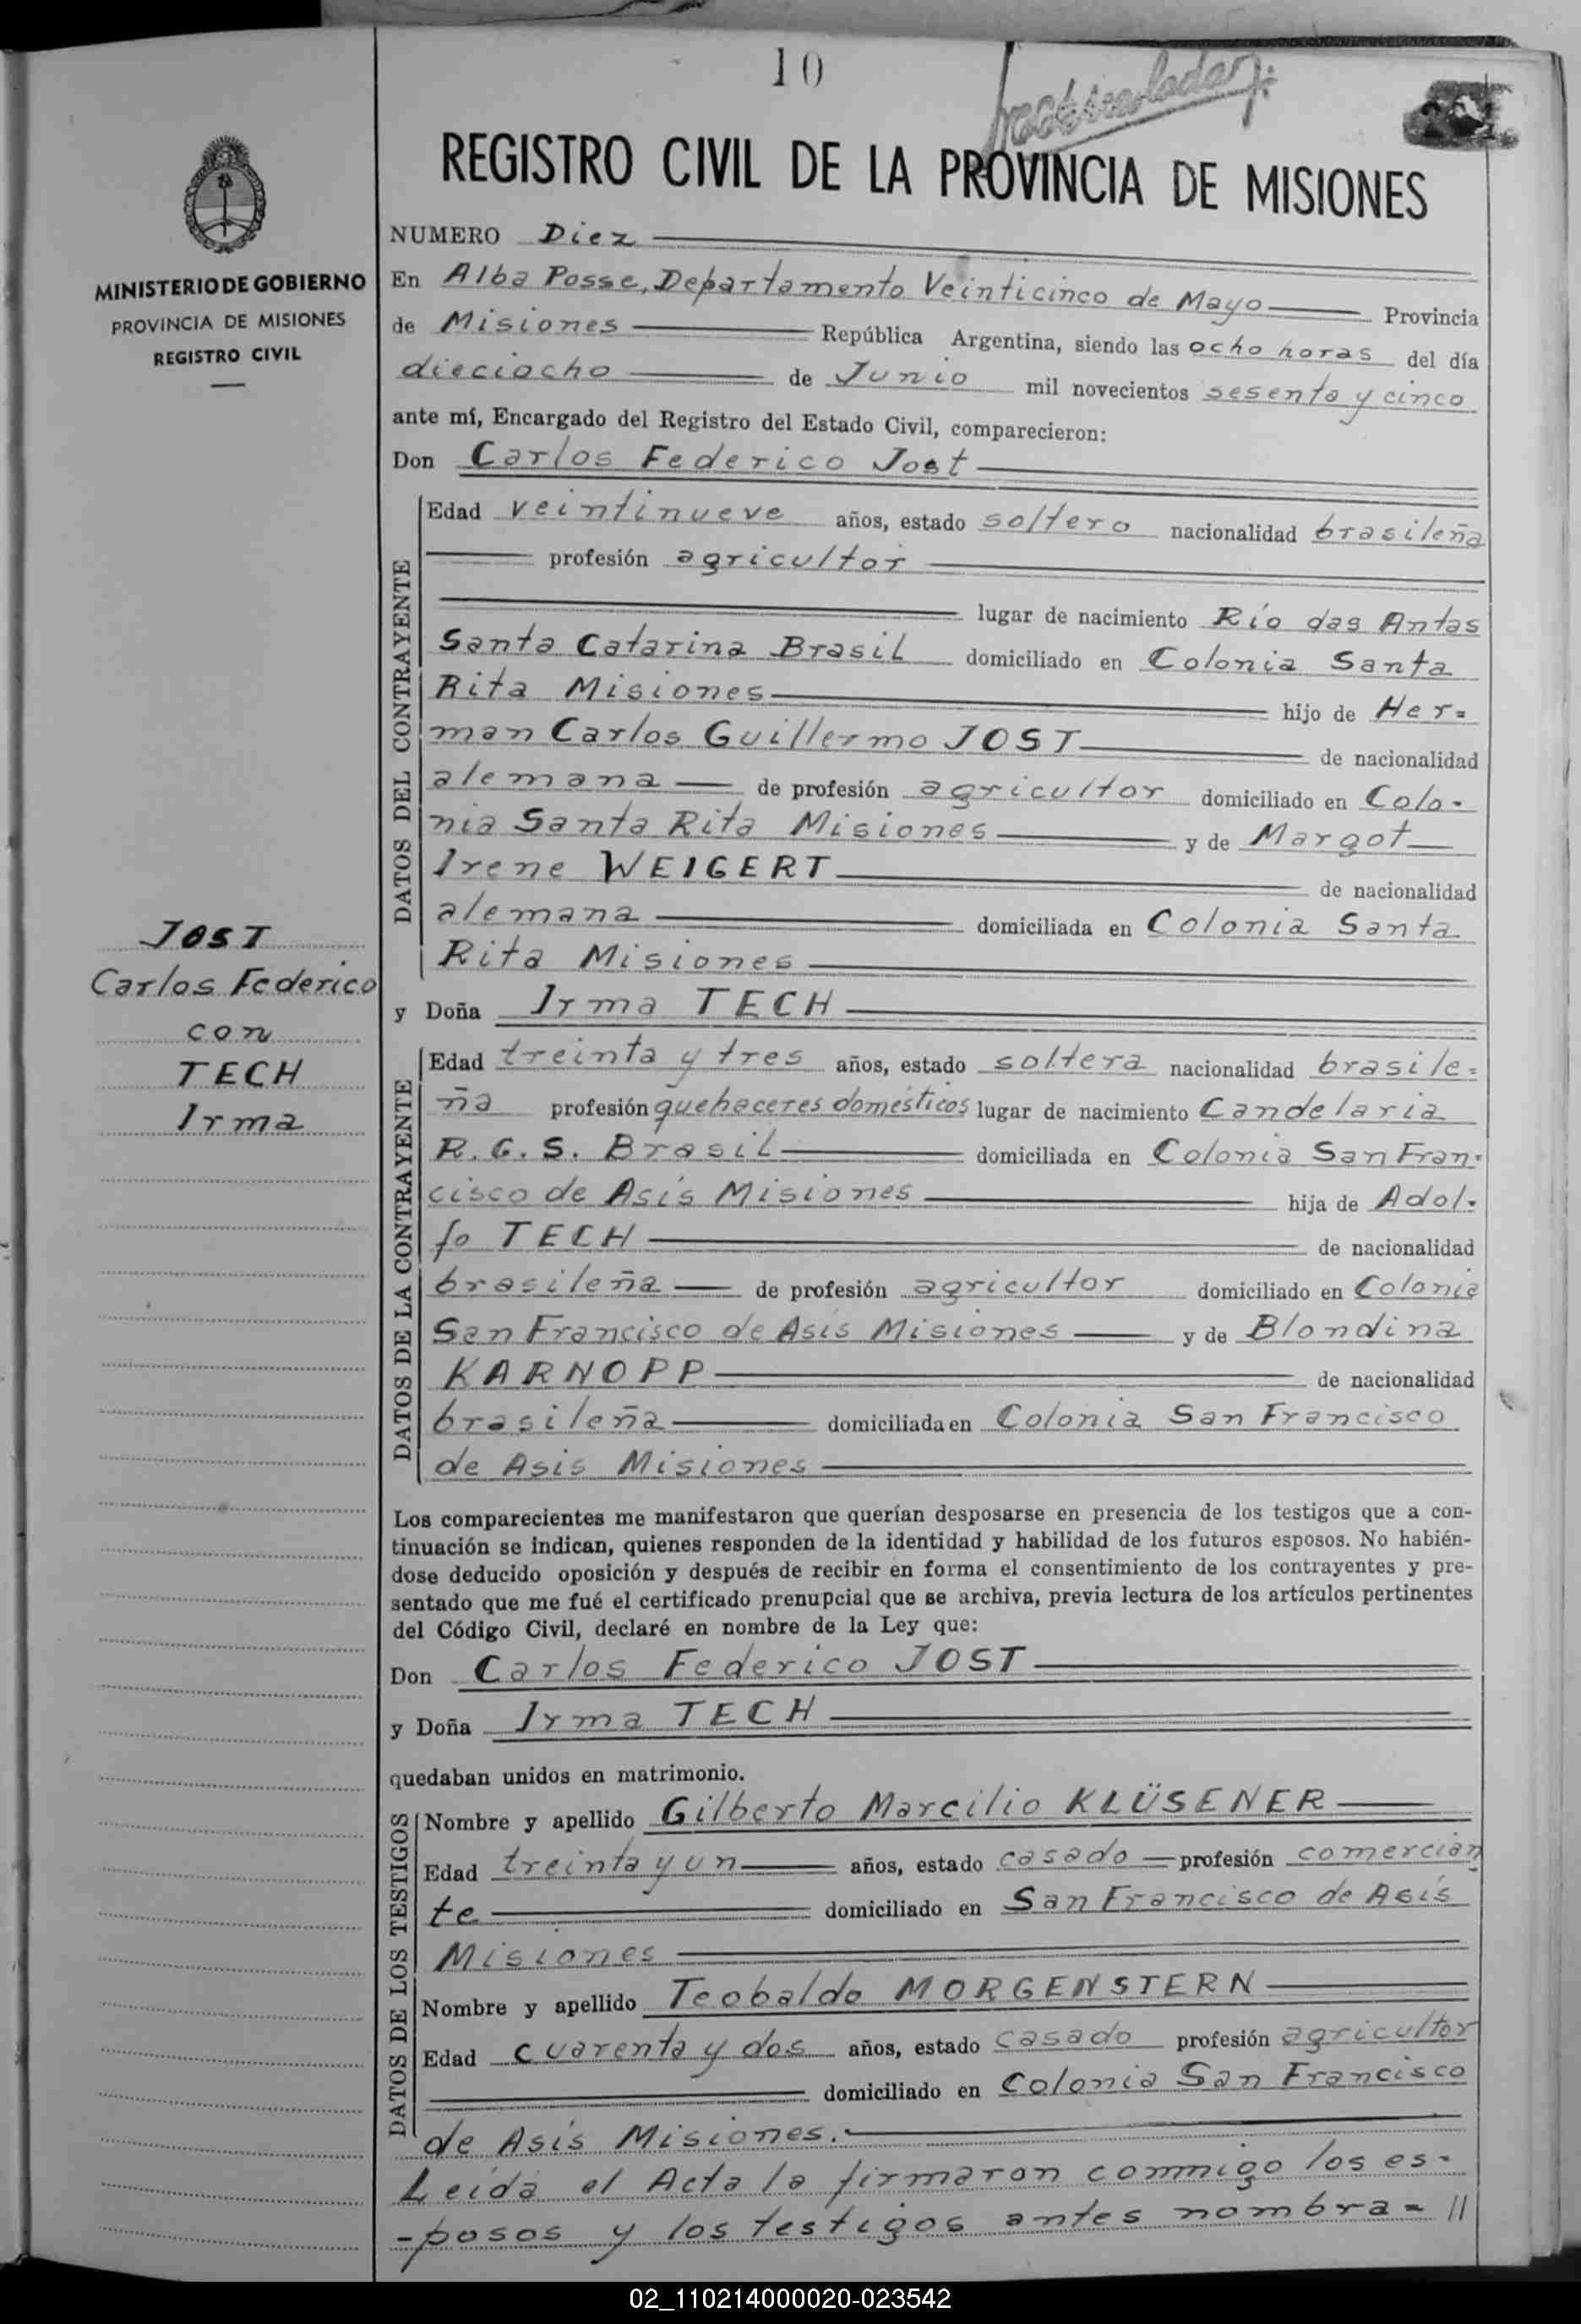 10
REGISTRO CIVIL DE LA PROVINCIA DE MISIONES
MINISTERIO DE GOBIERNO
PROVINCIA DE MISIONES
REGISTRO CIVIL
NUMERO Diez
En Alba Posse, Departamento Veinticinco de Mayo Provincia
de Misiones República Argentina, siendo las ocho horas del día
dieciocho de Junio mil novecientos sesenta y cinco
ante mí, Encargado del Registro del Estado Civil, comparecieron:
Don Carlos Federico Jost
DATOS DEL CONTRAYENTE
Edad veintinueve años, estado soltero nacionalidad brasileña
profesión agricultor
lugar de nacimiento Río das Antas
Santa Catarina Brasil domiciliado en Colonia Santa
Rita Misiones hijo de Her=
man Carlos Guillermo JOST de nacionalidad
alemana de profesión agricultor domiciliado en Colo-
nia Santa Rita Misiones y de Margot
Irene WEIGERT de nacionalidad
alemana domiciliada en Colonia Santa
Rita Misiones
JOST
Carlos Federico
con
TECH
Irma
y Doña Irma TECH
DATOS DE LA CONTRAYENTE
Edad treinta y tres años, estado soltera nacionalidad brasile=
ña profesión quehaceres domésticos lugar de nacimiento Candelaria
R. G. S. Brasil domiciliada en Colonia San Fran-
cisco de Asís Misiones hija de Adol-
fo TECH de nacionalidad
brasileña de profesión agricultor domiciliado en Colonia
San Francisco de Asis Misiones y de Blondina
KARNOPP de nacionalidad
brasileña domiciliada en Colonia San Francisco
de Asis Misiones
Los comparecientes me manifestaron que querían desposarse en presencia de los testigos que a con-
tinuación se indican, quienes responden de la identidad y habilidad de los futuros esposos. No habién-
dose deducido oposición y después de recibir en forma el consentimiento de los contrayentes y pre-
sentado que me fué el certificado prenupcial que se archiva, previa lectura de los artículos pertinentes
del Código Civil, declaré en nombre de la Ley que:
Don Carlos Federico JOST
y Doña Irma TECH
quedaban unidos en matrimonio.
DATOS DE LOS TESTIGOS
Nombre y apellido Gilberto Marcilio KLÜSENER
Edad treinta y un años, estado casado profesión comercian
te domiciliado en San Francisco de Asís
Misiones
Nombre y apellido Teobaldo MORGENSTERN
Edad cuarenta y dos años, estado casado profesión agricultor
domiciliado en Colonia San Francisco
de Asís Misiones.
Leída el Acta la firmaron conmigo los es-
-posos y los testigos antes nombra= //
02_110214000020-023542